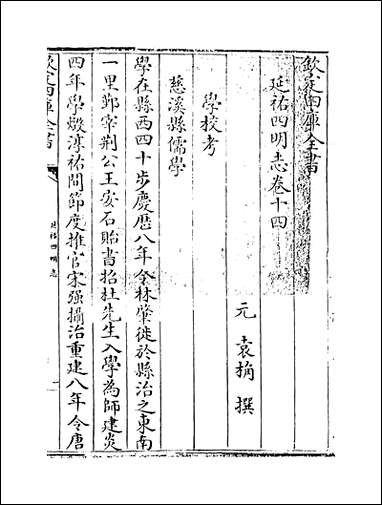 欽定四庫全書
延祐四明志卷十四
元 袁桷 撰
學校考
慈溪縣儒學
學在縣西四十步慶歷八年令林肇徙於縣治之東南
一里鄞宰荆公王安石貽書招杜先生入學為師建炎
四年學燬淳祐間節度推官宋强攝治重建八年令唐
欽定四庫全書
延祐四明志
一